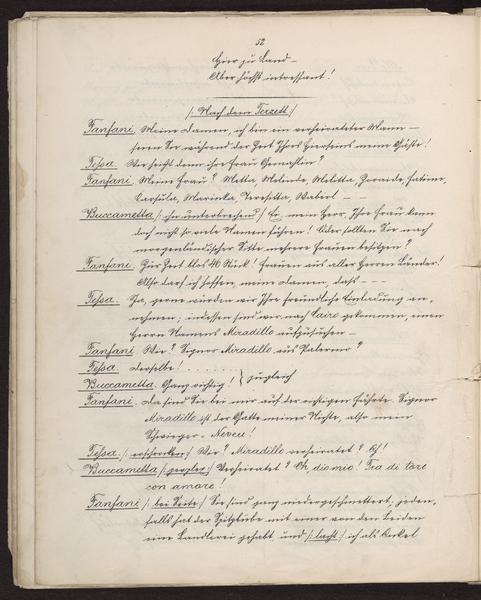 52
Hier zu Land –
Aber höchst interessant!
/: Nach dem Terzett :/
Fanfani. Meine Damen, ich bin ein verheirateter Mann –
seien Sie während der Zeit Ihres Hierseins meine Gäste!
Tessa. Wie heißt denn ihre Frau Gemahlin?
Fanfani. Meine Frau? Metta, Melinde, Melitta, Zoraide, Fatime,
Marinka, Teresitta, Waberl –
Buccametta /: ihn unterbrechend :/ Ei, mein Herr, Ihre Frau kann
doch nicht so viele Namen führen! Oder sollten Sie nach
morgenländischer Sitte mehrere Frauen besitzen?
Fanfani. Zur Zeit blos 46 Stück! Frauen aus aller Herren Länder!
Also darf ich hoffen, meine Damen, daß – – –
Tessa. Ja, gerne würden wir Ihre freundliche Einladung an-
nehmen; indessen sind wir nach Cairo gekommen, einen
Herrn Namens Miradillo aufzusuchen –
Fanfani. Wie? Signor Miradillo aus Palermo?
Tessa. Derselbe! . . . . . . .
Buccametta. Ganz richtig! } zugleich
Fanfani. Da sind Sie bei mir auf der richtigen Fährte. Signor
Miradillo ist der Gatte meiner Nichte, also mein
Schwieger-Neveu!
Tessa /: erschrocken :/ Wie? Miradillo verheiratet? O!
Buccametta /: :/ Verheiratet? Oh, dio mio! Fra di tore
con amore!
Fanfani /: bei Seite :/ Sie sind ganz niedergeschmettert, jeden-
falls hat der Spitzbube mit einer von den Beiden
eine Bandlerei gehabt und /: lacht :/ ich als Onkel